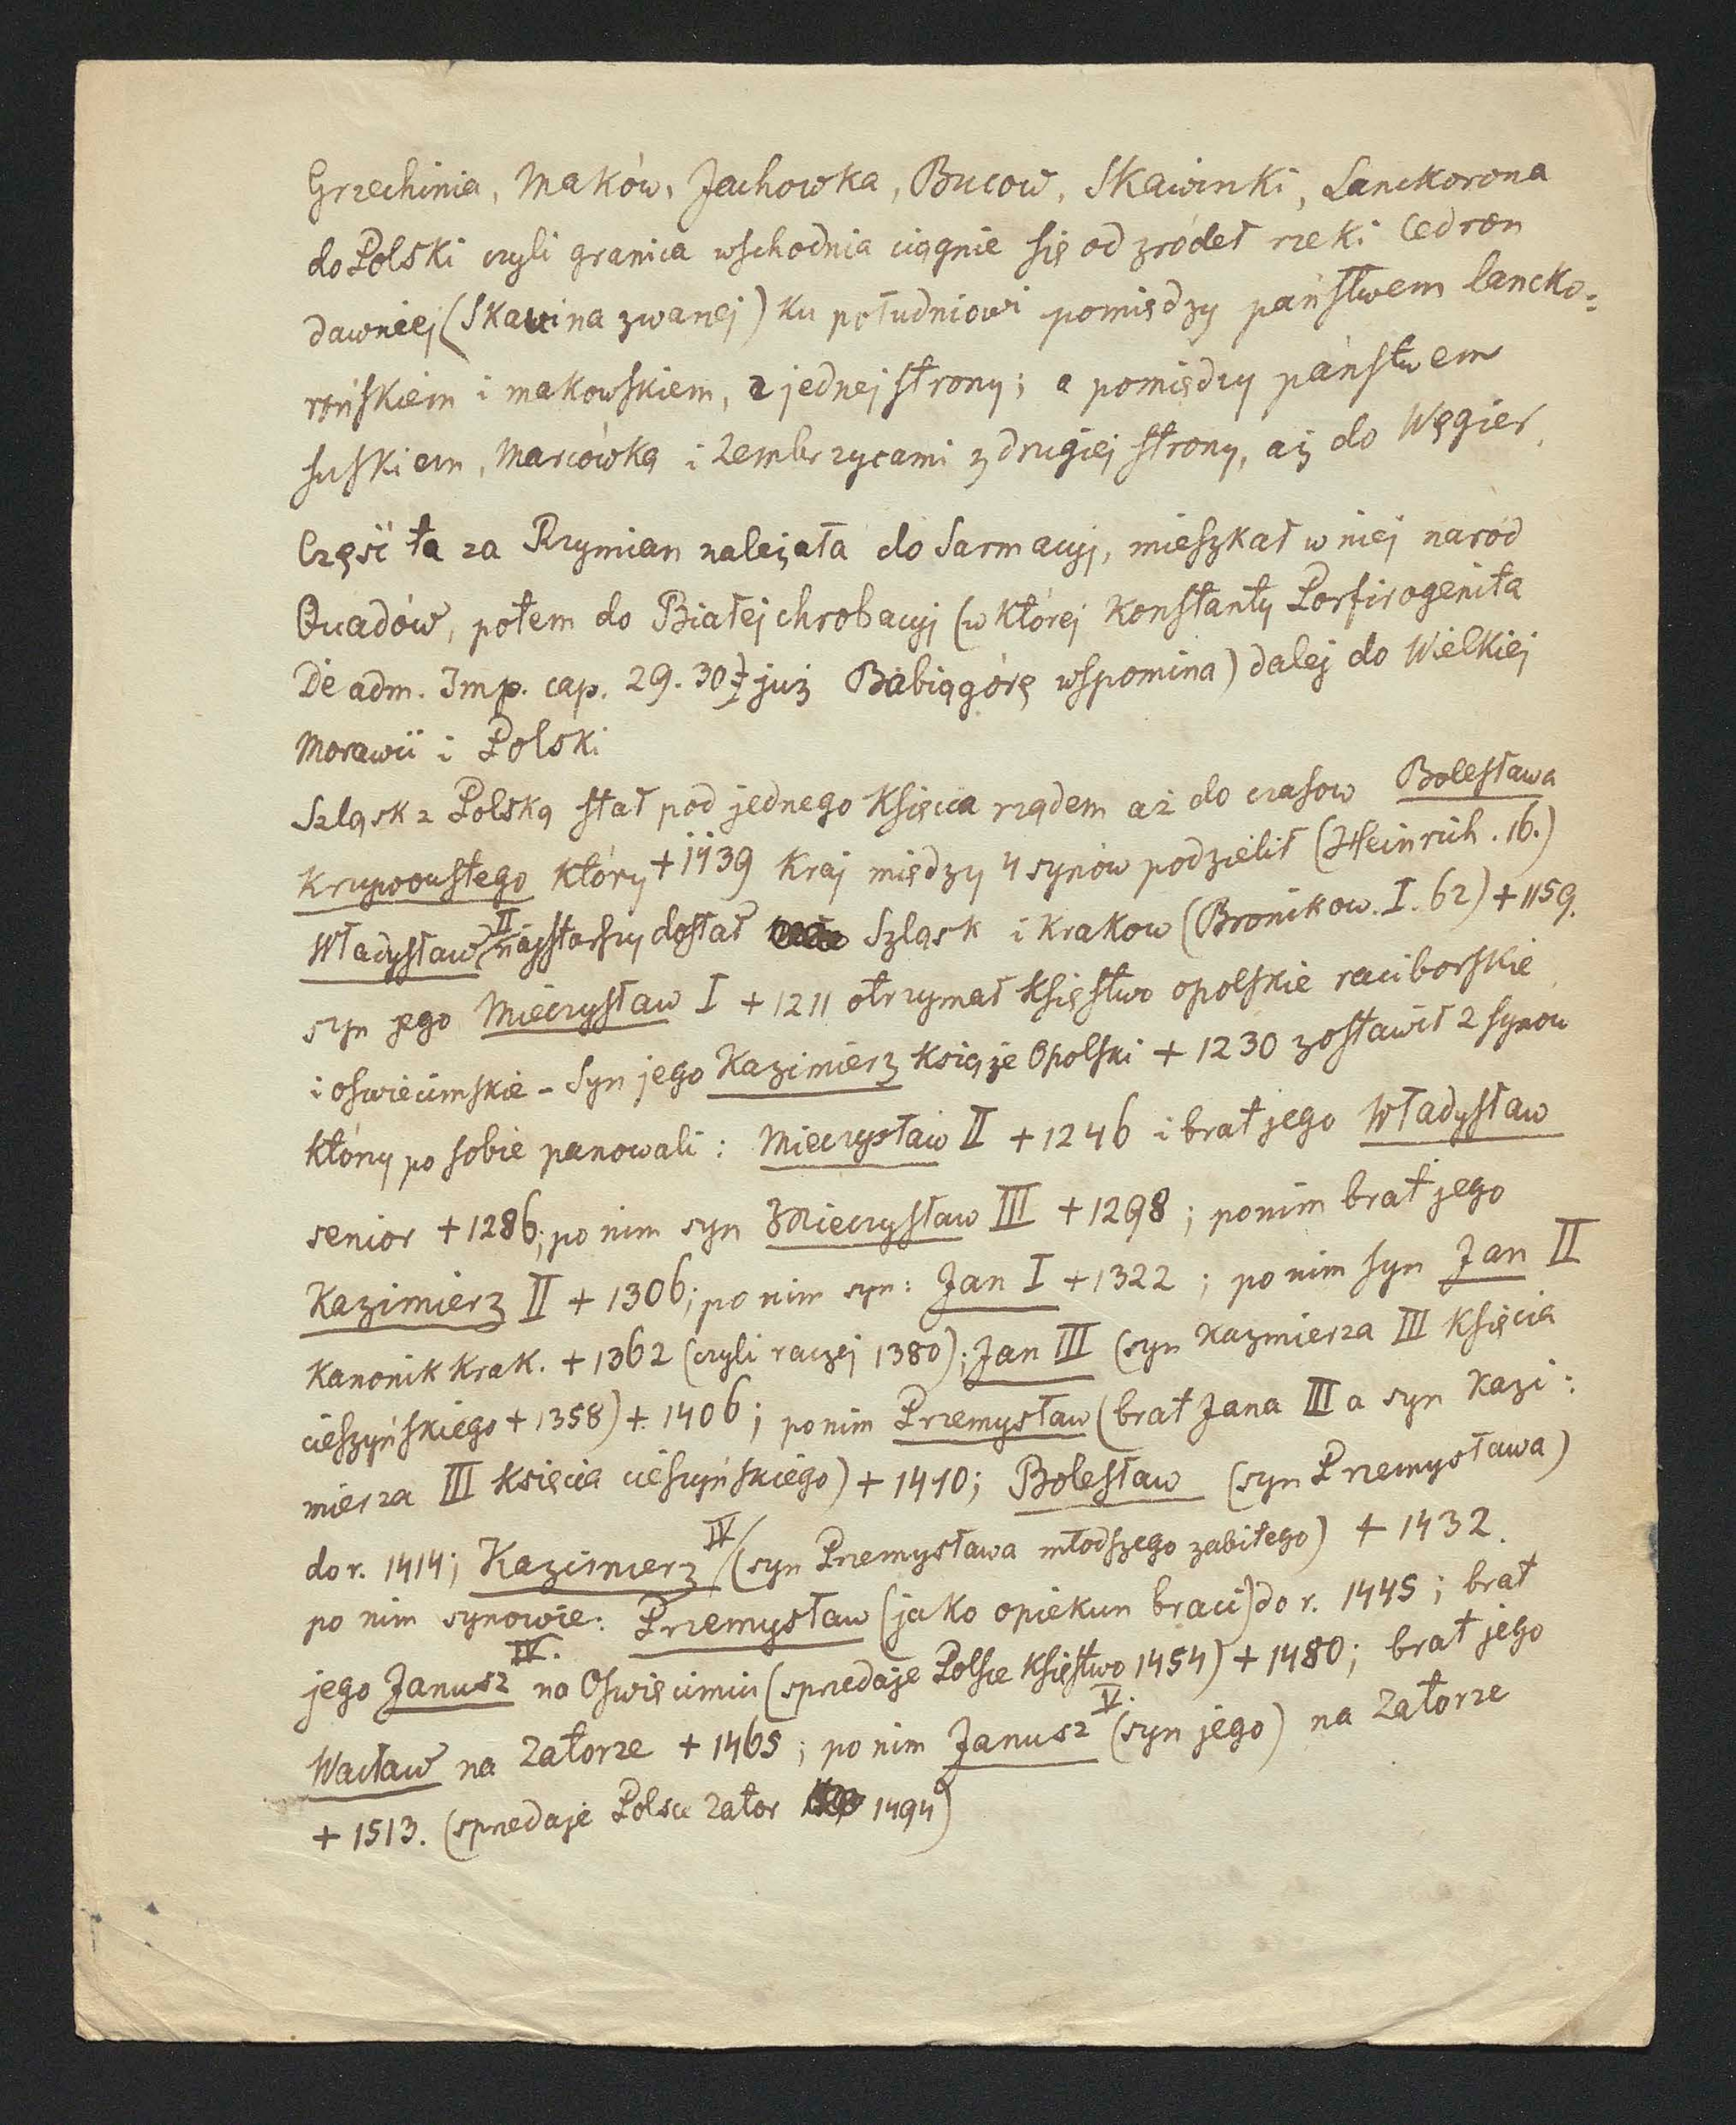 Grzechinia, Maków, Jachowka, Bucow, Skawinki, Lanckorona
do Polski czyli granica wschodnia ciągnie się od zródeł rzeki Cedron
dawniej (Skawina zwanej) ku południowi pomiędzy państwem lancko=
rońskiem i makowskiem, z jednej strony; a pomiędzy państwem
suskiem, Marcówką i Zembrzycami z drugiej strony, aż do Węgier.
Część ta za Rzymian należała do Sarmacyj, mieszkał w niej naród
Quadów, potem do Białej chrobacyj (w której Konstanty Porfirogenita
De adm. Imp. cap. 29. 30 już Babiągórę wspomina) dalej do Wielkiej
Morawii i Polski
Szląsk z Polską stał pod jednego Księcia rządem aż do czasow Bolesława
Krzywoustego który +1139 Kraj między 4 synów podzielił (Heinrich. 16.)
Władysław II najstarszy dostał Szląsk i Krakow (Bronikow. I. 62) +1159.
syn jego Mieczysław I +1211 otrzymał Księstwo opolskie raciborskie
i oswiecimskie - Syn jego Kazimierz Książe Opolski +1230 zostawił 2 synow
którzy po sobie panowali: Mieczysław II +1246 i brat jego Władysław
senior +1286; po nim syn Mieczysław III +1298; ponim brat jego
Kazimierz II +1306; po nim syn: Jan I +1322; po nim syn Jan II
Kanonik Krak. +1362 (czyli raczej 1380); Jan III (syn Kazmierza III Księcia
cieszyńskiego +1358) +1406; ponim Przemysław (brat Jana III a syn Kazi=
mierza III Księcia cieszyńskiego) +1410; Bolesław (syn Przemysława)
do r. 1414; Kazimierz IV (syn Przemysława młodszego zabitego) +1432.
po nim synowie: Przemysław (jako opiekun braci) do r. 1445; brat
jego Janusz IV. na Oswięcimiu (sprzedaje Polsce Księstwo 1454) +1480; brat jego
Wacław na Zatorze +1465; po nim Janusz V. (syn jego) na Zatorze
+1513. (sprzedaje Polsce Zator 1494)